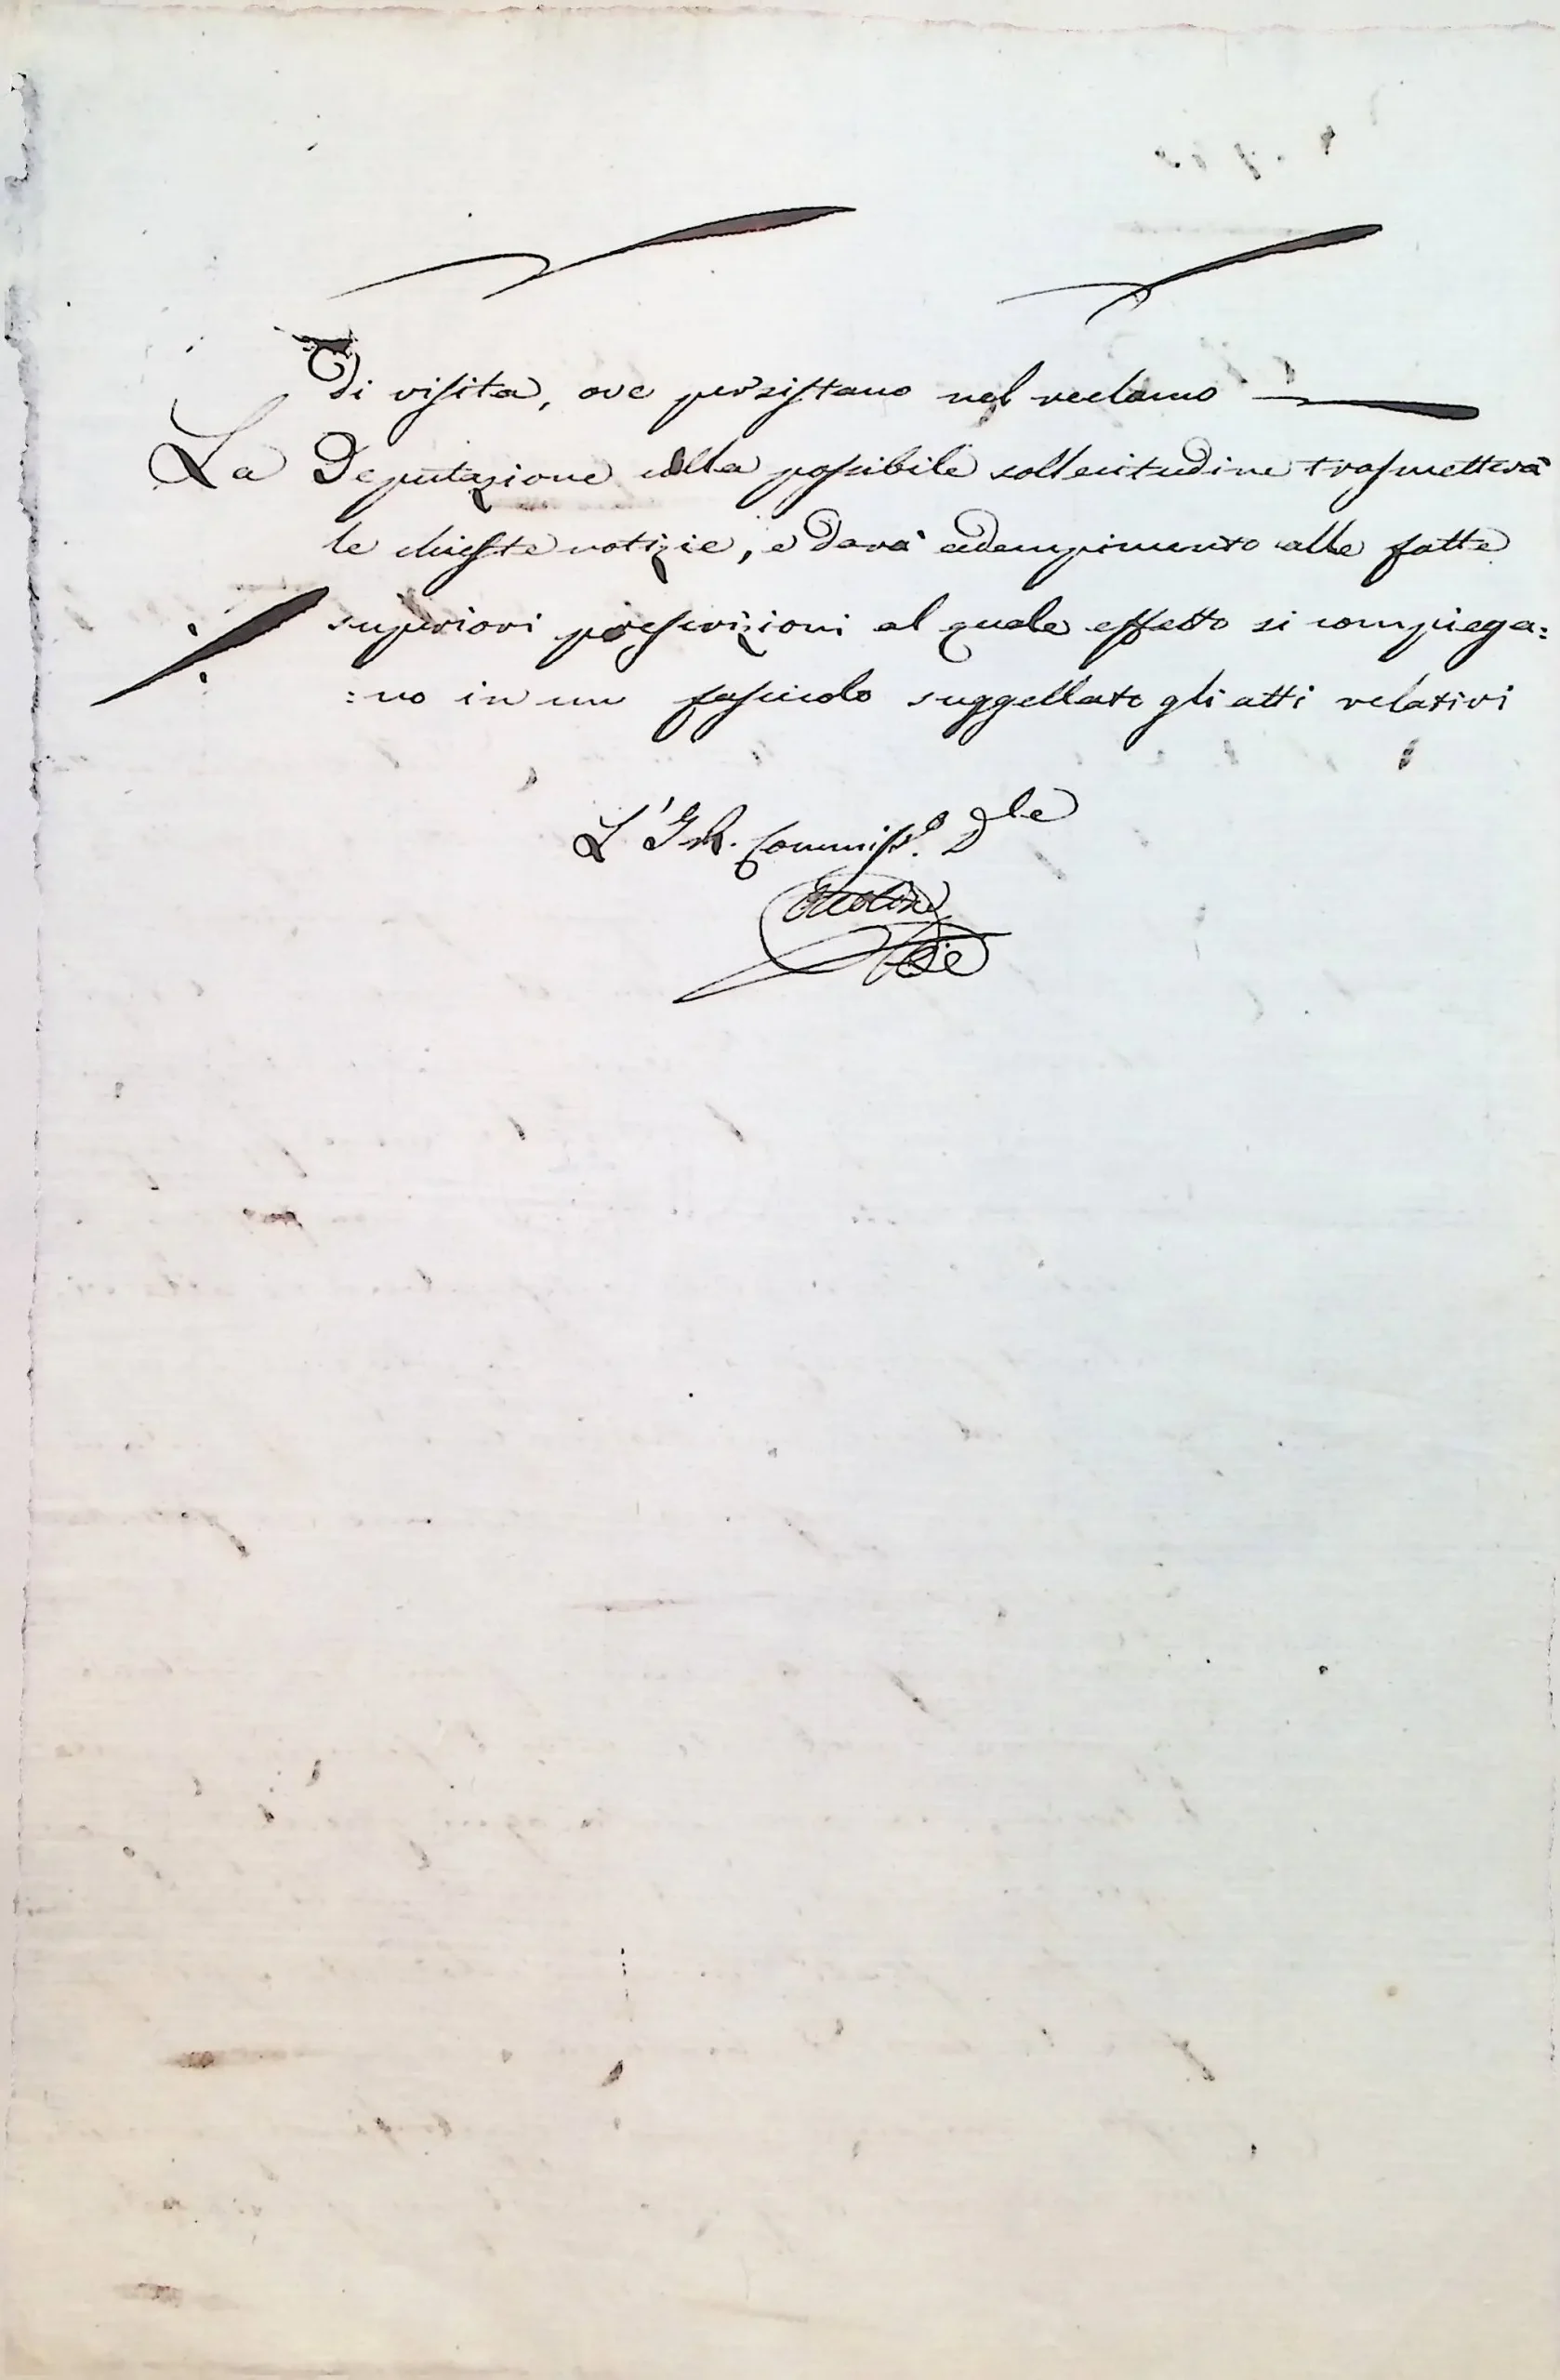 di visita, ove persistano nel reclamo
La Deputazione colla possibile sollecitudine trasmetterà
le chieste notizie, e darà adempimento alle fatte
superiori prescrizioni al quale effetto si compiega=
=no in un fascicolo suggellato gli atti relativi
L'I.R. Commiss.o D.le